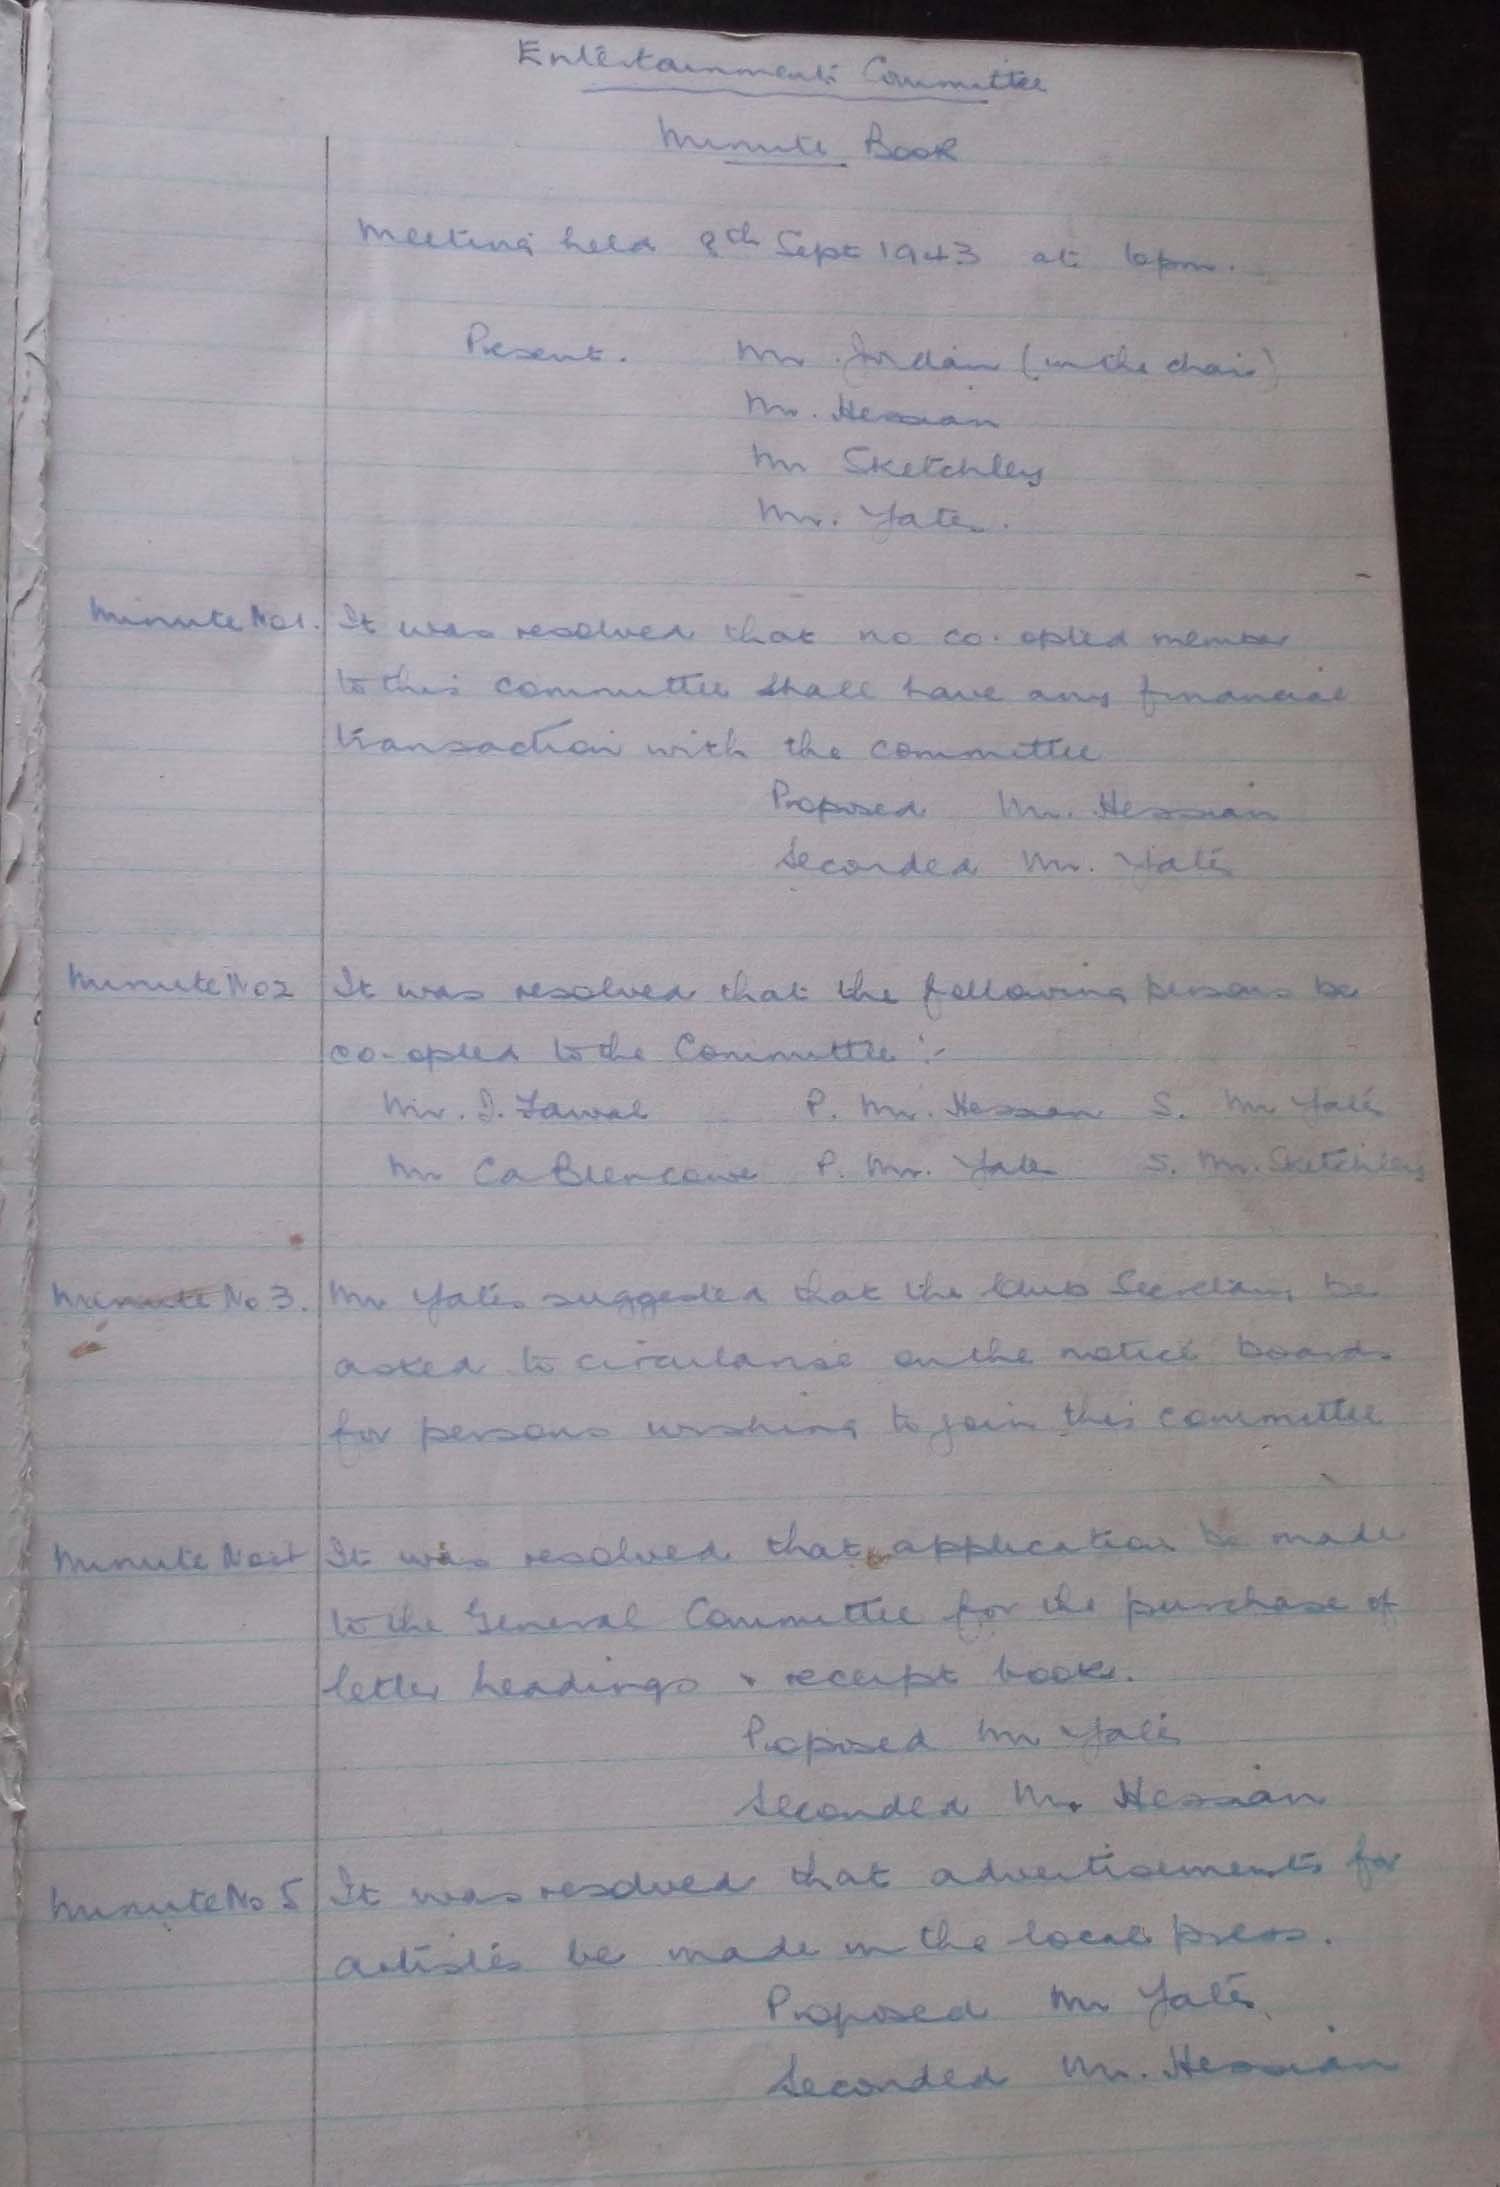 Entertainments Committee
Minute Book
Meeting held 8th Sept 1943 at 6pm.
Present. Mr. Jordan (in the chair)
Mr. Hessian
Mr Sketchley
Mr. Yates.
Minute No 1. It was resolved that no co-opted member
to this committee shall have any financial
transaction with the committee
Proposed Mr. Hessian
Seconded Mr. Yates
Minute No 2 It was resolved that the following persons be
co-opted to the Committee :-
Mr. J. P. Mr. Hessian S. Mr Yates
Mr Ca Blencowe P. Mr. Yates S. Mr. Sketchley
Minute No 3. Mr Yates suggested that the Club Secretary be
asked to circularise on the notice boards
for persons wishing to join this committee
Minute No 4 It was resolved that application be made
to the General Committee for the purchase of
letter headings & receipt books.
Proposed Mr Yates
Seconded Mr. Hessian
Minute No 5 It was resolved that advertisements for
artistes be made in the local press.
Proposed Mr Yates.
Seconded Mr. Hessian